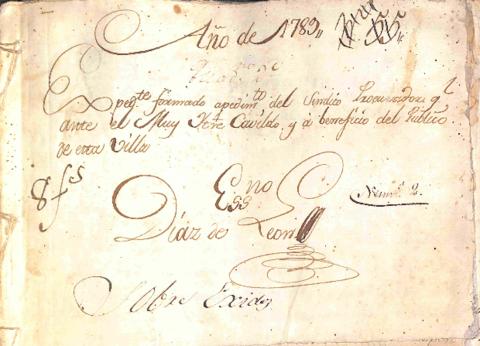 Año de 1789,,
Expegte formado apedimto del Sindico Procurador gl
ante el Muy Iltre Cavildo, y à beneficio del Publico
de esta Villa
8 fs
Esno
Numo 2.
Díaz de Leon
Sobre Exidos